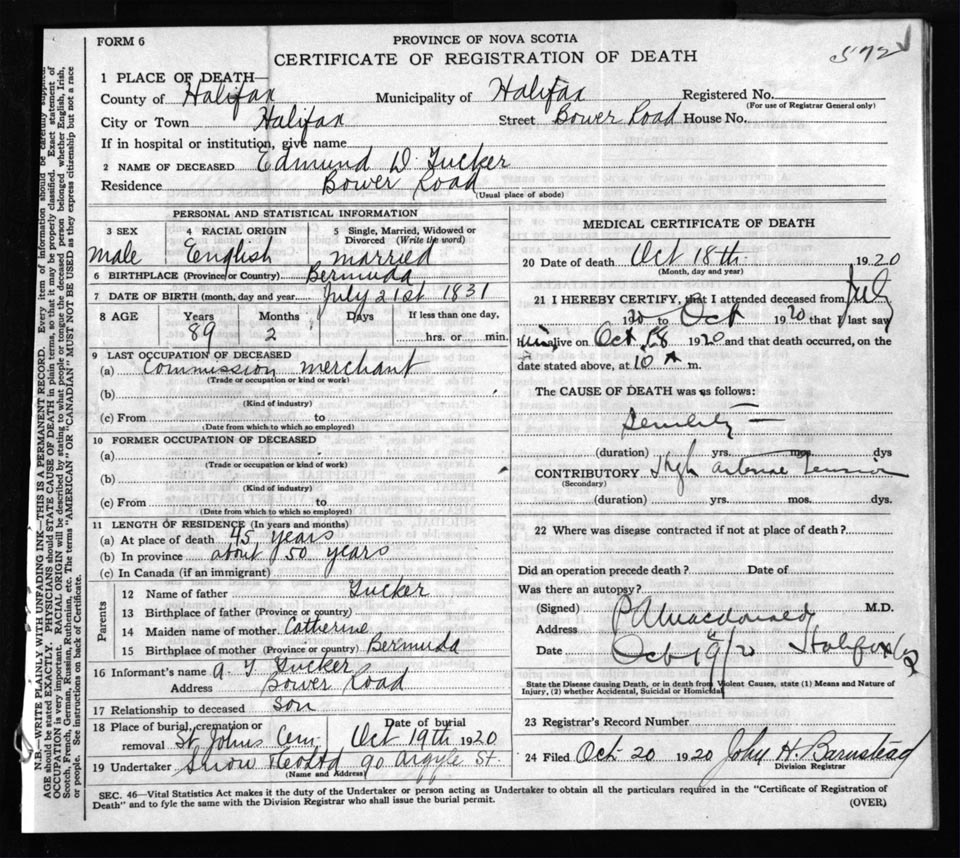 FORM 6
PROVINCE OF NOVA SCOTIA
572
CERTIFICATE OF REGISTRATION OF DEATH
1 PLACE OF DEATH—
County of Halifax Municipality of Halifax Registered No.
(For use of Registrar General only)
City or Town Halifax Street Bower Road House No.
If in hospital or institution, give name
2 NAME OF DECEASED Edmund D. Tucker
Residence Bower Road
(Usual place of abode)
PERSONAL AND STATISTICAL INFORMATION
3 SEX 4 RACIAL ORIGIN 5 Single, Married, Widowed or Divorced (Write the word)
Male English married
6 BIRTHPLACE (Province or Country) Bermuda
7 DATE OF BIRTH (month, day and year) July 21st 1831
8 AGE Years Months Days If less than one day,
89 2 hrs. or min.
9 LAST OCCUPATION OF DECEASED
(a) Commission merchant
(Trade or occupation or kind or work)
(b)
(Kind of industry)
(c) From to
(Date from which to which so employed)
10 FORMER OCCUPATION OF DECEASED
(a)
(Trade or occupation or kind of work)
(b)
(Kind of industry)
(c) From to
(Date from which to which so employed)
11 LENGTH OF RESIDENCE (In years and months)
(a) At place of death 45 years
(b) In province about 50 years
(c) In Canada (if an immigrant)
Parents
12 Name of father Tucker
13 Birthplace of father (Province or country)
14 Maiden name of mother Catherine
15 Birthplace of mother (Province or country) Bermuda
16 Informant's name A. T. Tucker
Address Bower Road
17 Relationship to deceased Son
18 Place of burial, cremation or removal St Johns Cem. Date of burial Oct 19th 1920
19 Undertaker Snow 90 Argyle St.
(Name and Address)
MEDICAL CERTIFICATE OF DEATH
20 Date of death Oct 18th 1920
(Month, day and year)
21 I HEREBY CERTIFY, that I attended deceased from Jul
1920 to Oct 1920 that I last saw
him alive on Oct 18 1920 and that death occurred, on the
date stated above, at 10 A m.
The CAUSE OF DEATH was as follows:
Senility —
(duration) yrs. mos. dys
CONTRIBUTORY High arterial Tension
(Secondary)
(duration) yrs. mos. dys.
22 Where was disease contracted if not at place of death?
Did an operation precede death? Date of
Was there an autopsy?
(Signed) Macdonald M.D.
Address
Date Oct 19/20 Halifax
State the Disease causing Death, or in death from Violent Causes, state (1) Means and Nature of Injury, (2) whether Accidental, Suicidal or Homicidal
23 Registrar's Record Number
24 Filed Oct 20 1920 John H. Barnstead
Division Registrar
SEC. 46—Vital Statistics Act makes it the duty of the Undertaker or person acting as Undertaker to obtain all the particulars required in the "Certificate of Registration of
Death" and to fyle the same with the Division Registrar who shall issue the burial permit.
(OVER)
N.B.—WRITE PLAINLY WITH UNFADING INK—THIS IS A PERMANENT RECORD. Every item of information should be carefully supplied.
AGE should be stated EXACTLY. PHYSICIANS should STATE CAUSE OF DEATH in plain terms, so that it may be properly classified. Exact statement of
OCCUPATION is very important. RACIAL ORIGIN will be described by stating to what people or tongue the deceased person belonged whether English, Irish,
Scotch, French, German, Russian, Ruthenian, etc. The terms "AMERICAN" OR "CANADIAN" MUST NOT BE USED as they express citizenship but not a race
or people. See instructions on back of Certificate.